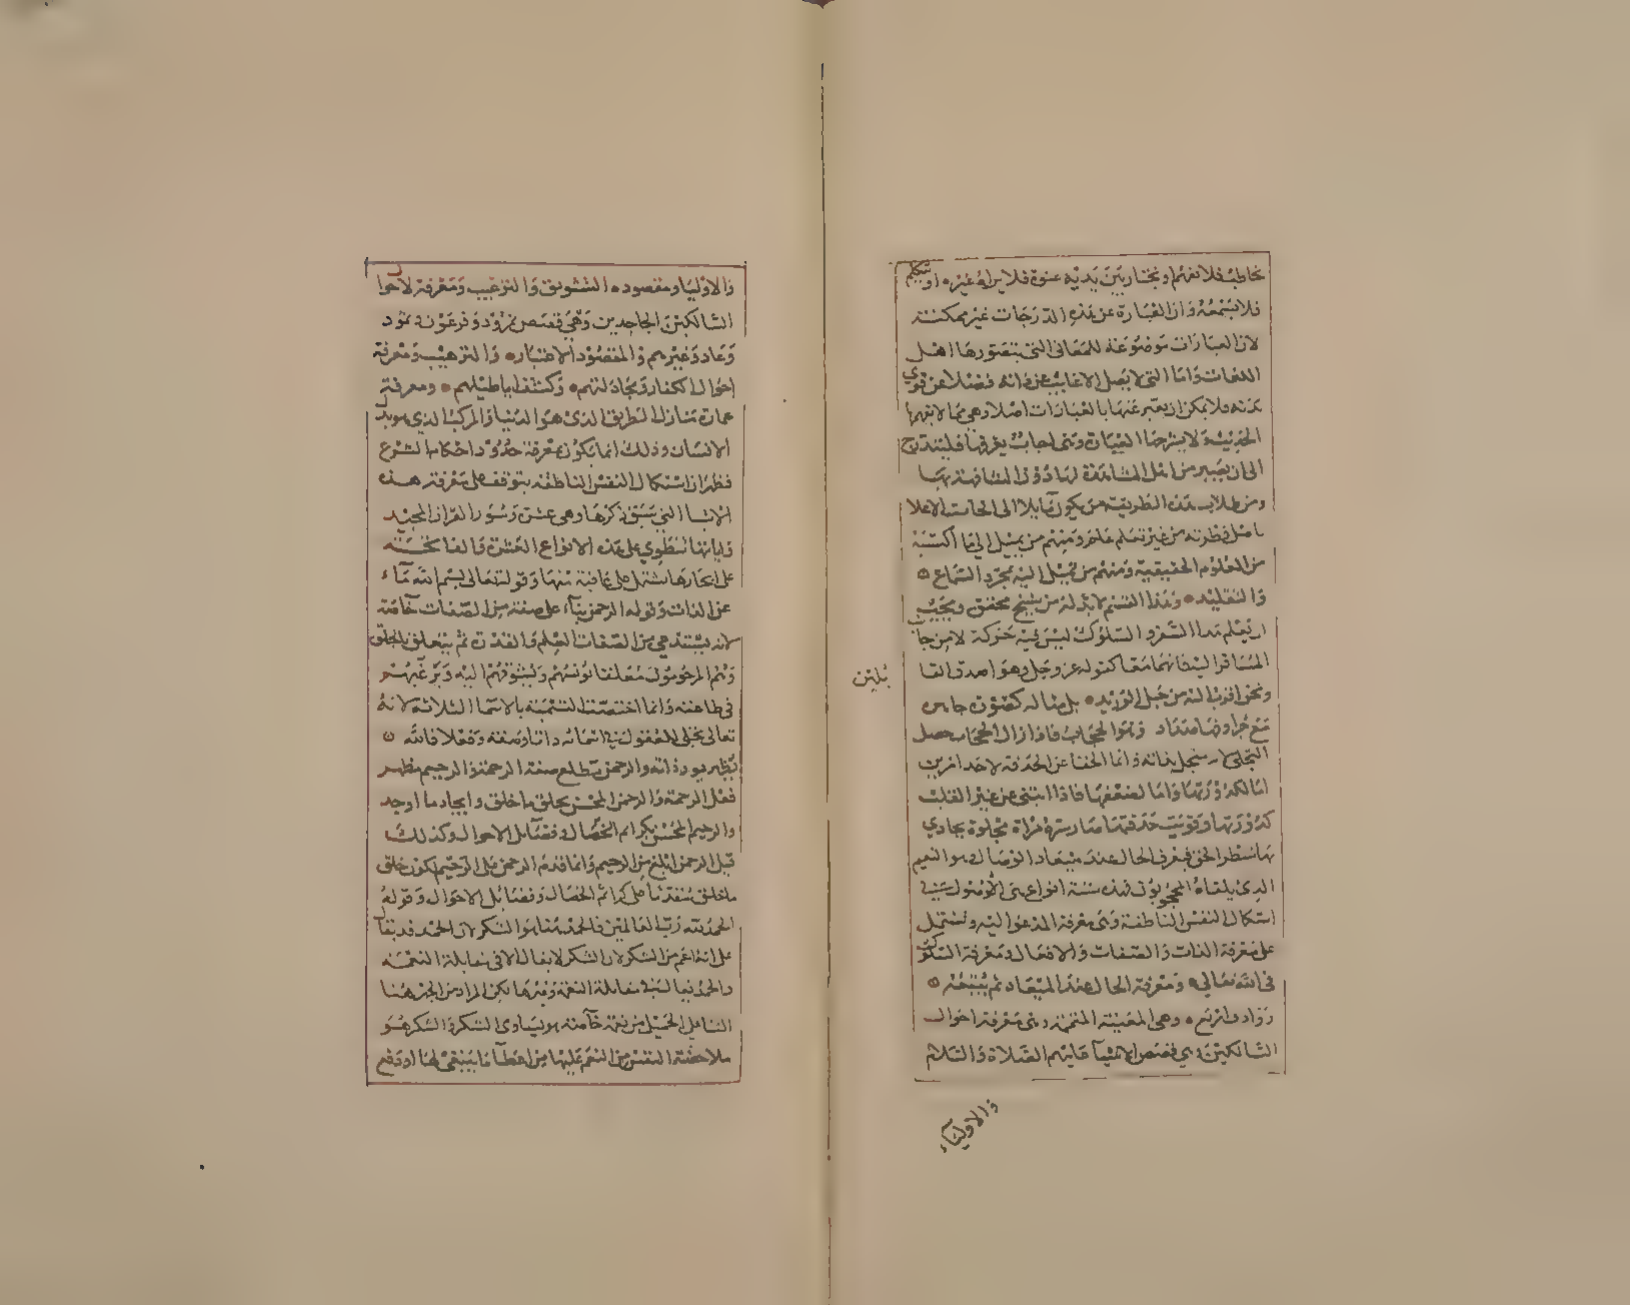 خاطب فلا تفهم او نختار بين يديه عنوة فلا يراه غيره او يتكلم
فلا يسمعه وان العبارة عن هذه الدرجات غير ممكنة
لان العبارات موضوعة للمعاني التي يتصورها اهل
اللغات واما التي لا يصل الا غايب عن ذاته فضلا عن قوي
بدنه فلا يمكن ان يعبر عنها بالعبارات اصلا وهي مما لا يفهمها
الحديث ولا يشرحها العبارة ومن احب ان يعرفها فليتدرج
الى ان يصير من اهل المشاهدة لها دون المشافهة بها
ومن طلاب هذه الطريقة من يكون مايلا الى الجانب الاعلا
باصل فطرته من غير تعلم علم ومنهم من يميل الى ما اكتسبه
من العلوم الحقيقية ومنهم من يميل اليه بمجرد السماع
والتقليد وهذا القسم لا بد له من شيخ محقق ويجب
ان يعلم هذا السفر والسلوك ليس فيه حركة لا من جانب
المسافر اليه فانهما معا كقوله عز وجل وهو اصدق القا
ونحن اقرب اليه من حبل الوريد بل مثاله كصورة حاضرة
مع مرآة وضا متداد وهو الحجاب فاذا زال الحجاب حصل
التجلي
اما لكدورتها واما لضعفها فاذا انتفى عن عين القلب
كدورتها وقويت حدقتها صارت مرآة مجلوة يحاذي
بها شطر الحق فيعرف الحال عند ميعاد الوصال وهو النعيم
الذي يلقاه المحجوبون فهذه ستة انواع هي الاصول في
استكمال النفس الناطقة وهي معرفة المدعو اليه وتشتمل
على معرفة الذات والصفات والافعال ومعرفة السلوك
في الله تعالى ومعرفة الحال عند الميعاد ثم يتبعه
روادف اربع وهي المعينة المتممة وهي معرفة احوال
السالكين وهي قصص الانبيآ عليهم الصلاة والسلام
والاوليآء
والاوليا ومقصوده التشويق والترغيب ومعرفة لاحوال
السالكين الجاحدين وهي قصص نمرود وفرعون وثمود
وعاد وغيرهم والمقصود الاعتبار والترهيب ومعرفة
احوال الكفار ومجادلتهم وكشف اباطيلهم ومعرفة
عمارة منازل الطريق الذي هو الدنيا والمركب الذي هو بدن
الانسان وذلك انما يكون بمعرفة حدود احكام الشرع
فظهر ان استكمال النفس الناطقة يتوقف على معرفة هذه
الاشيا التي سبق ذكرها وهي عشرة وسور القران المجيد
واياتها تنطوي على هذه الانواع العشرة والفاتحة
على ايجازها تشتمل على ثمانية منها وقوله تعالى بسم الله نبأء
عن الذات وقوله الرحمن نبأء على صفة من الصفات خاصة
لانه يستدعي من الصفات العلم والقدرة ثم يتعلق بالخلق
وهم المرحومون تعلقا يونسهم ويشوقهم اليه ويرغبهم
في طاعته وانما اختصت التسمية بالاسما الثلاثة لانه
تعالى تجلى للعقول في اسمائه ذاتا وصفة وفعلا فالله
يظهر بوجود ذاته والرحمن مطلع صفة الرحمة والرحيم مظهر
فعل الرحمة والرحمن المحسن بخلق ما خلق وايجاد ما اوجد
والرحيم المحسن بكرائم الخصال وفضائل الاحوال وكذلك
قيل الرحمن ابلغ من الرحيم وانما قدم الرحمن على الرحيم لكون خلق
ما خلق متقدما على كرائم الخصال وفضائل الاحوال وقوله
الحمد لله رب العالمين فالحمد هنا هو الشكر لان الحمد قد يقال
على انه اعم من الشكر لان الشكر لا يقال الا في مقابلة النعمة
والحمد يقال في مقابلة النعمة وغيرها لكن المراد من الحمد هنا
الثنا على الجميل من نعمة خاصة هو يساوي الشكر والشكر هو
ملاحظة النفس من المنعم عليها من اعطآ ما ينبغي لها او دفع